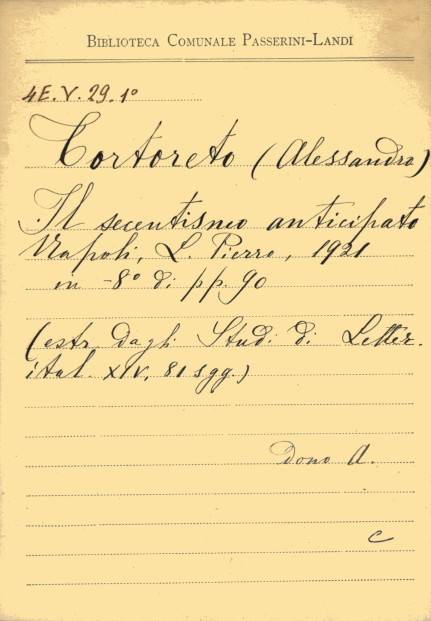 BIBLIOTECA COMUNALE PASSERINI-LANDI
4E.V.29.1°
Tortoreto (Alessandra)
Il secentismo anticipato
Napoli, L. Pierro, 1921
in -8° di pp. 90
(estr. dagli Studi di Letter.
ital. XIV, 81 sgg.)
Dono A.
C